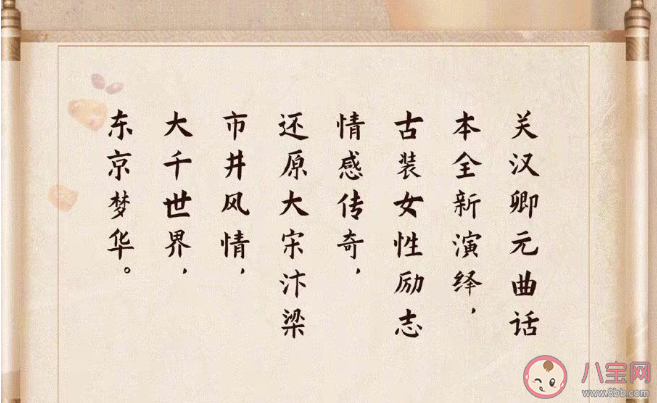 关汉卿元曲话
本全新演绎，
古装女性励志
情感传奇，
还原大宋汴梁
市井风情，
大千世界，
东京梦华。
八宝网
www.8bb.com